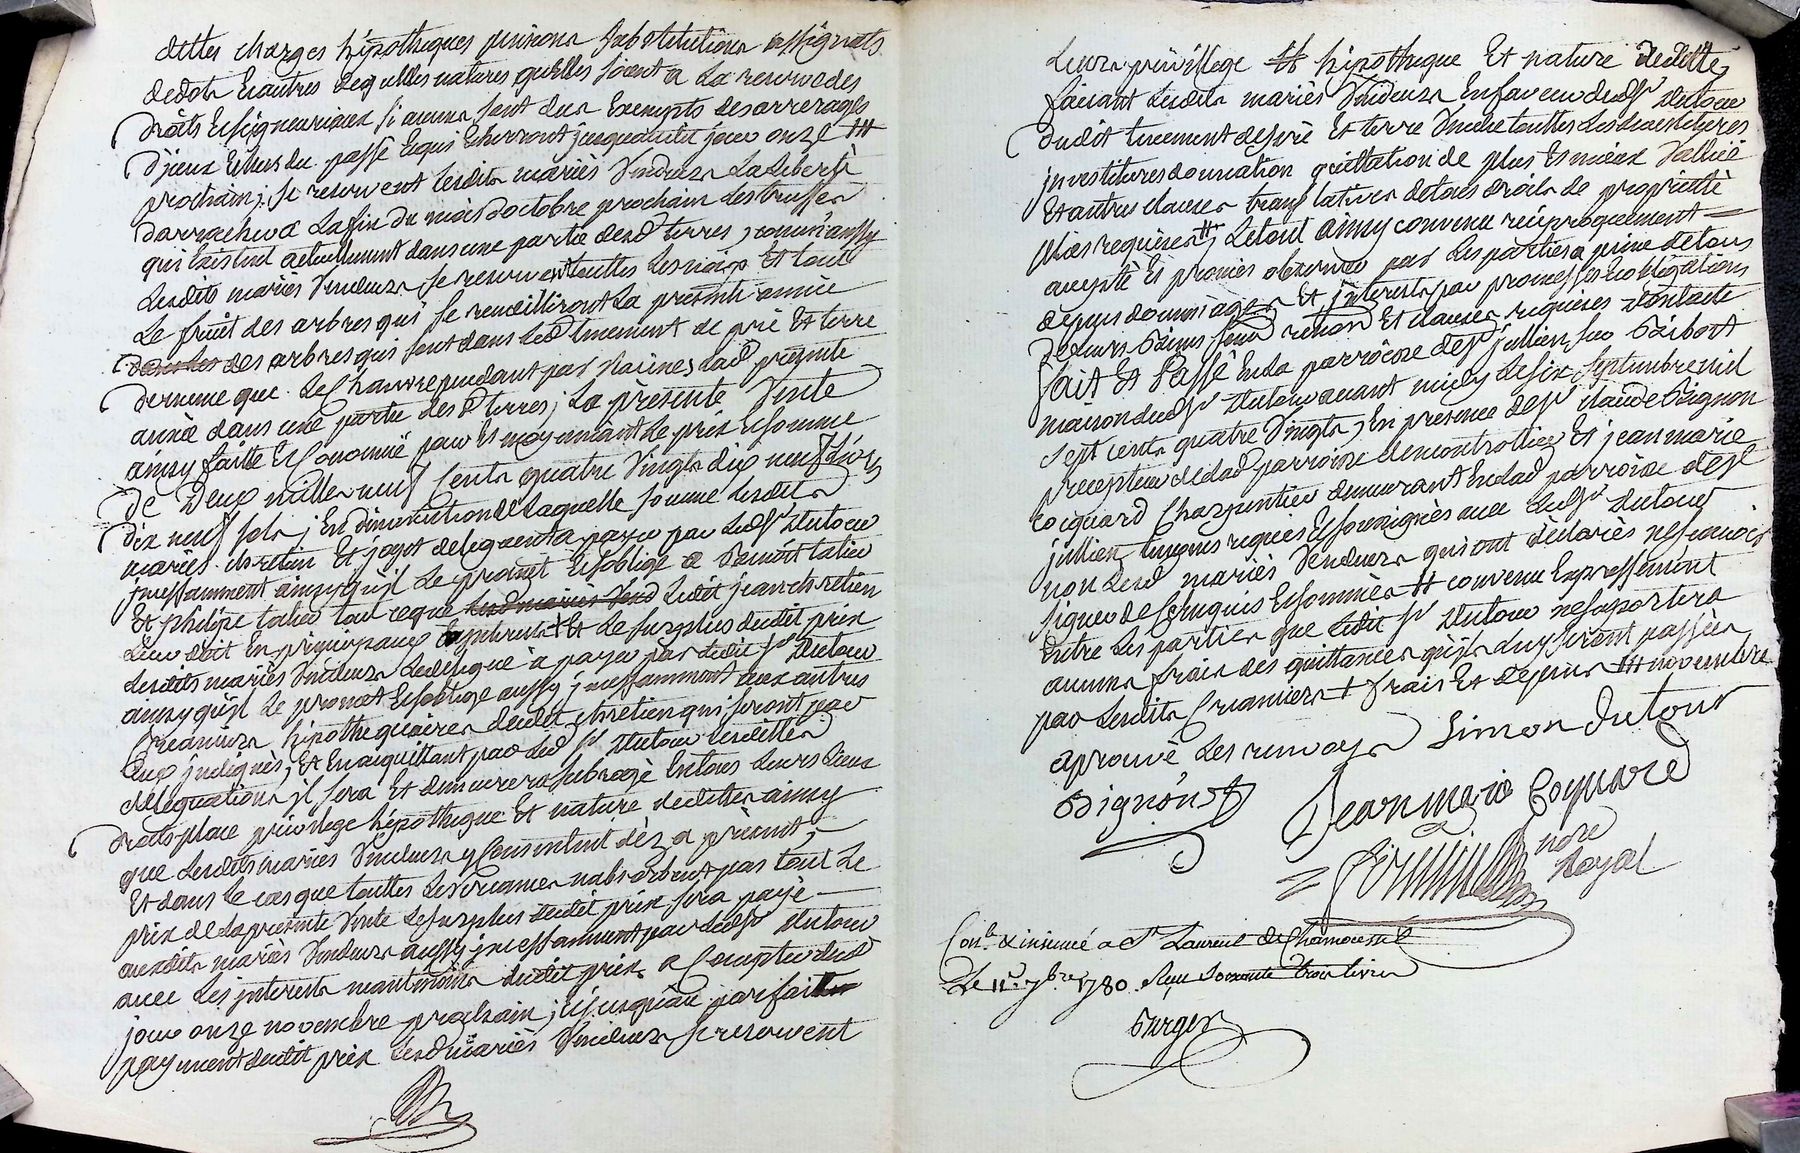 dettes charges hipotheques pensions substitutions assignats
dedots Et autres de quelles natures quelles soient a La reserve des
droits Et seigneuriaux si aucuns sont dus Exempts des arrerages
d'jceux Echus du passé Et qui Echerront jusquaudit jour onze ttt
prochain; se reservent lesdits mariés Vendeurs La liberté
d'arracher a Lafin du mois d'octobre prochain Les truffes
qui Existent actuellement dans une partie desd terres, comm'aussy
Lesdits mariés Vendeurs se reservent touttes Les noix Et tout
Le fruit des arbres qui se receuilliront La presente année
des arbres qui sont dans led tinement de pré Et terre
de meme que Le Chanvre pendant par Racines lad presente
année dans une partie desd terres; La presente Vente
ainsy faitte Et Convenue pour Et moyennant Le prix Et somme
de Deux mille neuf Cents quatre Vingts dix neuf Livres
dix neuf sols; En diminution de Laquelle somme lesdits
mariés chretien Et jogot deleguent a payer par Led Sr Dutour
jncessamment ainsy qu'il Le promet Et s'oblige a Benoit talieu
Et philipe talieu tout ce que lesd mariés Vend Ledit jean chretien
Leur doit En principaux Et jnterets Et Le surplus dudit prix
Lesdits mariés Vendeurs Le delegue à payer par Ledit Sr Dutour
ainsy qu'il Le promet Et s'oblige aussy jncessamment aux autres
Creanciers hipothequaires dudit chretien qui seront par
Eux jndiqués, Et En acquittant par Led Sr Dutour lesdittes
délégations jl sera Et demeurera subrogé En tous Leurs Lieux
droits place privilege hipotheque Et nature de dettes ainsy
que Lesdits mariés Vendeurs y Consentent dès a présent,
Et dans Le cas que touttes Les creances n'absorbent pas tout Le
prix de La presente Vente Le surplus dudit prix sera payé
auxdits mariés Vendeurs aussy jncessamment par Ledit Sr Dutour
avec Les jnterets neantmoins dudit prix a Compter dud
jour onze novembre prochain; Et jusqu'au parfait
payement dudit prix Lesd mariés Vendeurs se reservent
Leurs privillege tt hipotheque Et nature de dette,
faisant Lesdits mariés Vendeurs En faveur dud Sr Dutour
dudit tinement de pré Et terre Vendu touttes Les devestitures
jnvestitures donnation quittation de plus Et mieux Vallue
Et autres clauses translatives de tous droits de proprieté
plus requises, Le tout ainsy convenu reciproquement
accepté Et promis observer par Les parties a peine de tous
depens dommages Et jnterets par promesses Et obligations
de Leurs Biens Soum renon Et clauses requises Dontacte
fait Et Passé En La parroisse de St jullien sur Bibost
maison dud Sr Dutour avant midy Le six Septembre mil
sept cents quatre Vingts, En presence de Sr Claude Bignon
precepteur de lad parroisse demontrottier Et jean marie
Cocquard Charpentier demeurant En lad parroisse de St
jullien temoins requis Et soussignés avec Led Sr Dutour
non Lesd mariés Vendeurs qui ont déclarés ne scavoir
signer de ce Enquis Et sommés tt convenu Expressément
Entre Les parties que Ledit Sr Dutour ne supportera
aucuns frais des quittances qu'jls luy seront passées
par Lesdits Creanciers + frais Et depens ttt novembre
aprouvé Les renvoys Simon dutour
Bignon
Jean marie Coquard
nore
Royal
Con.lé & insinué a St Laurent de Chamousset
Le 11e 7bre 1780. Reçu Soixante trois livres